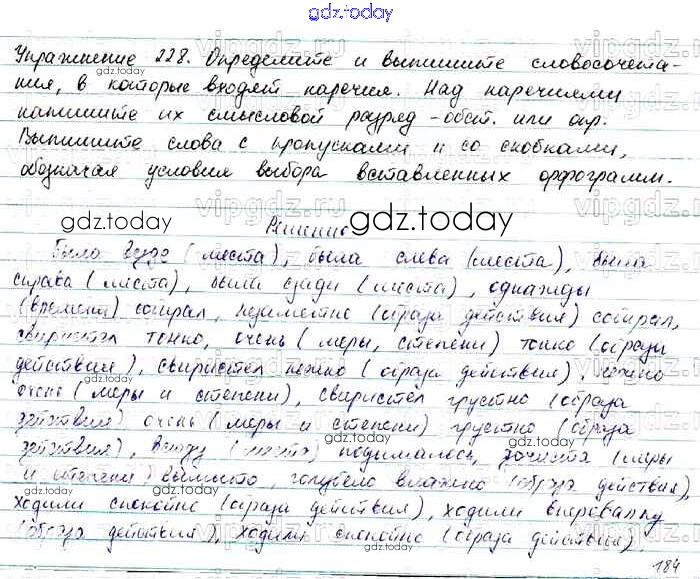 gdz.today
Упражнение 228. Определите и выпишите словосочета-
ния, в которые входят наречия. Над наречиями
напишите их смысловой разряд - обст. или опр.
Выпишите слова с пропусками и со скобками,
обозначая условия выбора вставленных орфограмм.
Решение
была везде (места), была слева (места), была
справа (места), были сзади (места), однажды
(времени) собирал, незаметно (образа действия) собирал,
свиристел тонко, очень (меры, степени) тонко (образа
действия), свиристел нежно (образа действия), нежно
очень (меры и степени), свиристел грустно (образа
действия), очень (меры и степени) грустно (образа
действия), (места) подималось, дочиста (меры
и степени) вымыто, голубело влажно (образа действия),
ходили спокойно (образа действия), ходили вперевалку
(образа действия), ходили спокойно (образа действия).
184